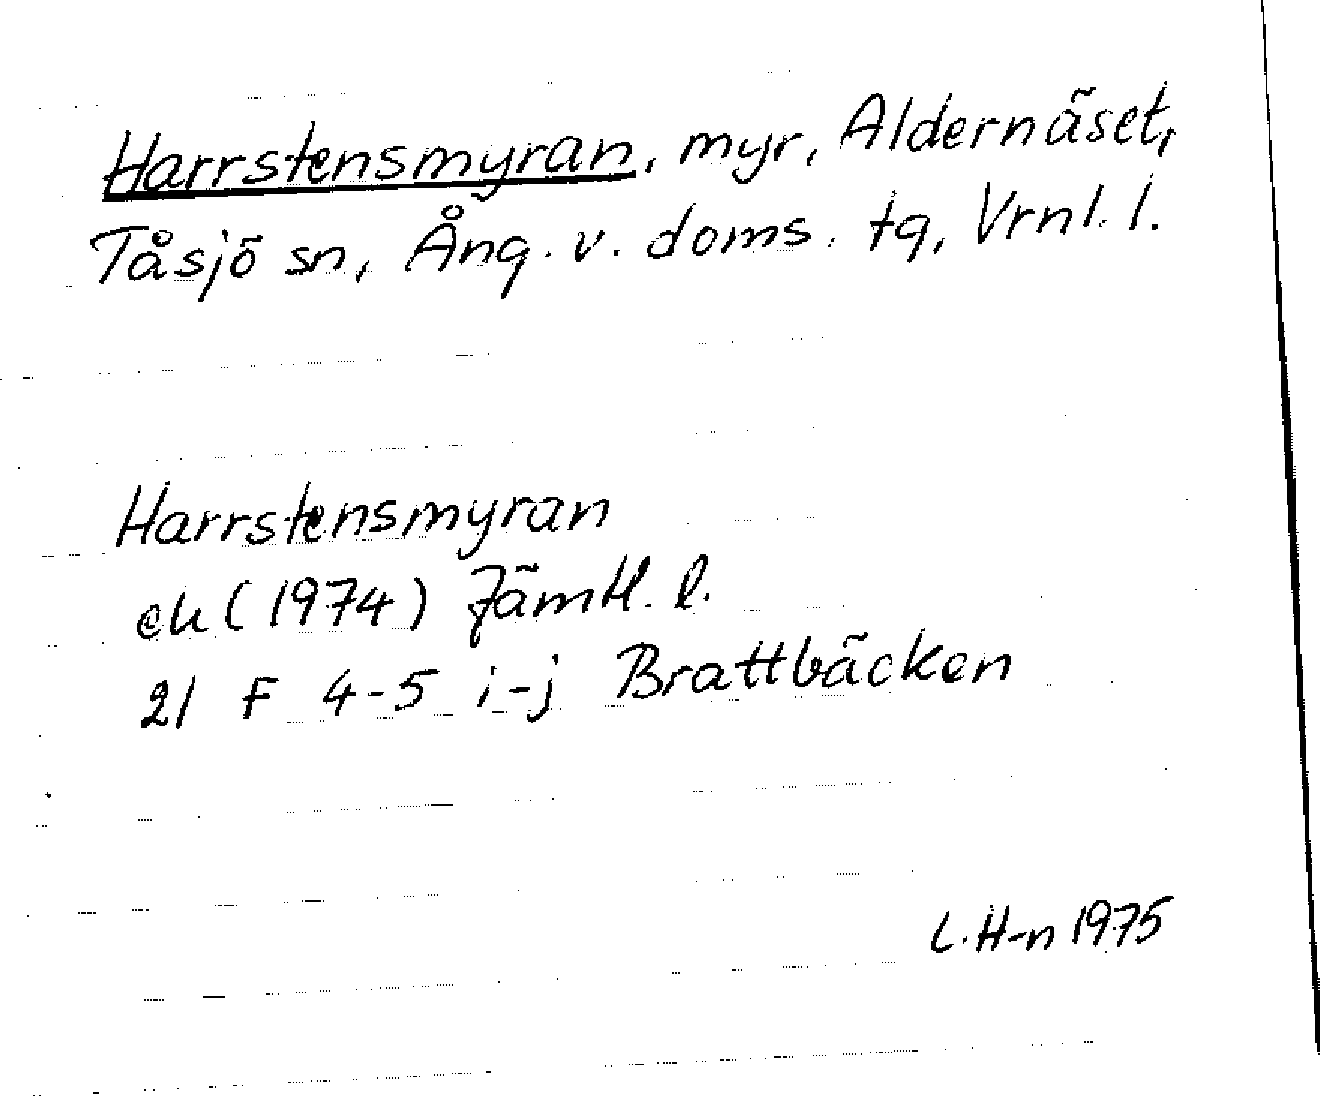 Harrstensmyran, myr, Aldernäset,
Tåsjö sn, Ång. v. doms. tg, Vrnl. l.
Harrstensmyran
ek (1974) Jämtl. l.
21 F 4-5 i-j Brattbäcken
L. H-n 1975